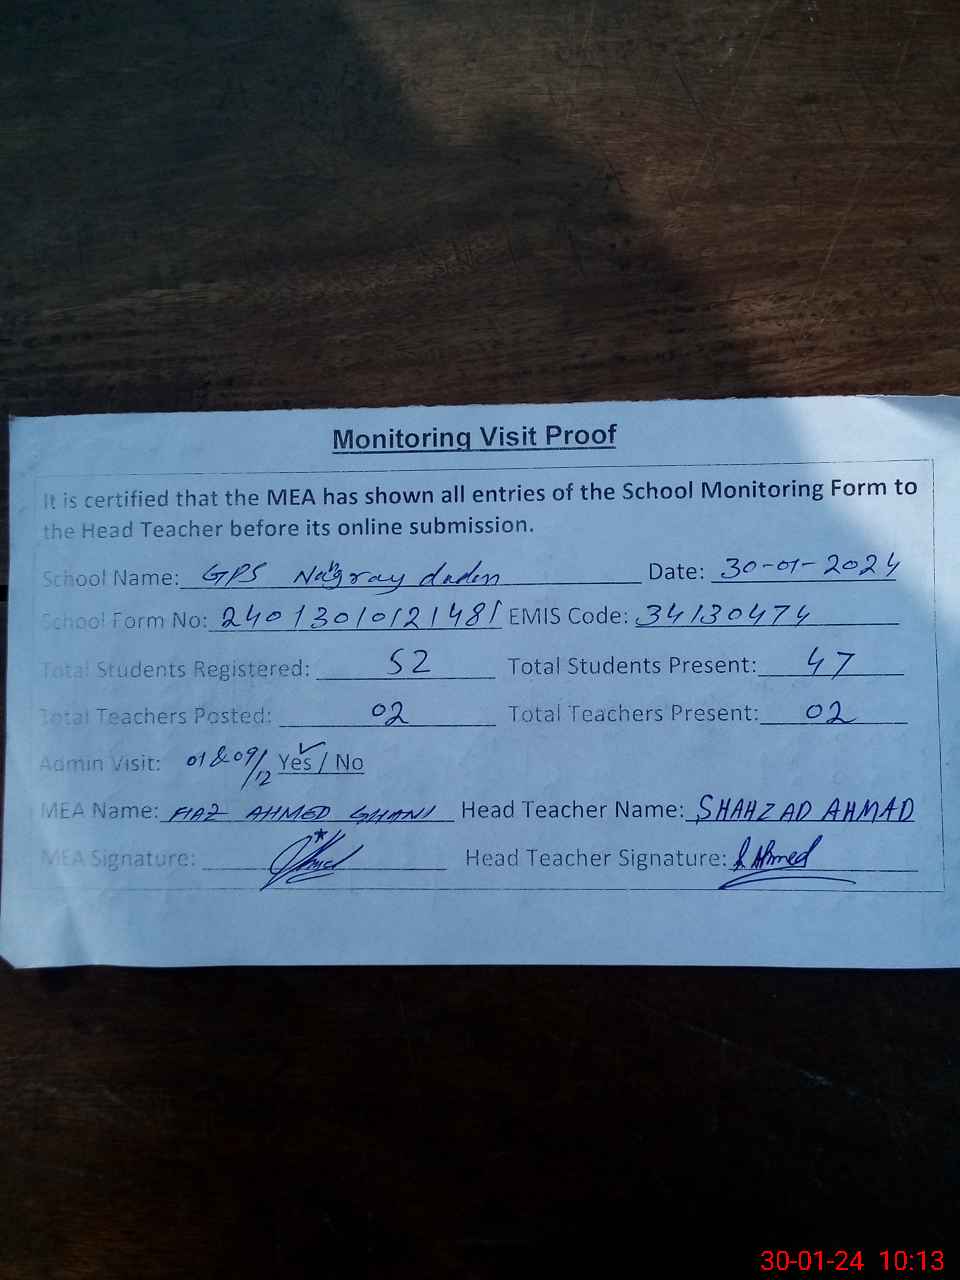 Monitoring Visit Proof
It is certified that the MEA has shown all entries of the School Monitoring Form to
the Head Teacher before its online submission.
School Name: GPS Nangray dadan Date: 30-01-2024
School Form No: 24013010121481 EMIS Code: 34130474
Total Students Registered: 52 Total Students Present: 47
Total Teachers Posted: 02 Total Teachers Present: 02
Admin Visit: 01 & 09/12 Yes / No
MEA Name: FIAZ AHMED GHANI Head Teacher Name: SHAHZAD AHMAD
MEA Signature: Head Teacher Signature: S. Ahmed
30-01-24 10:13